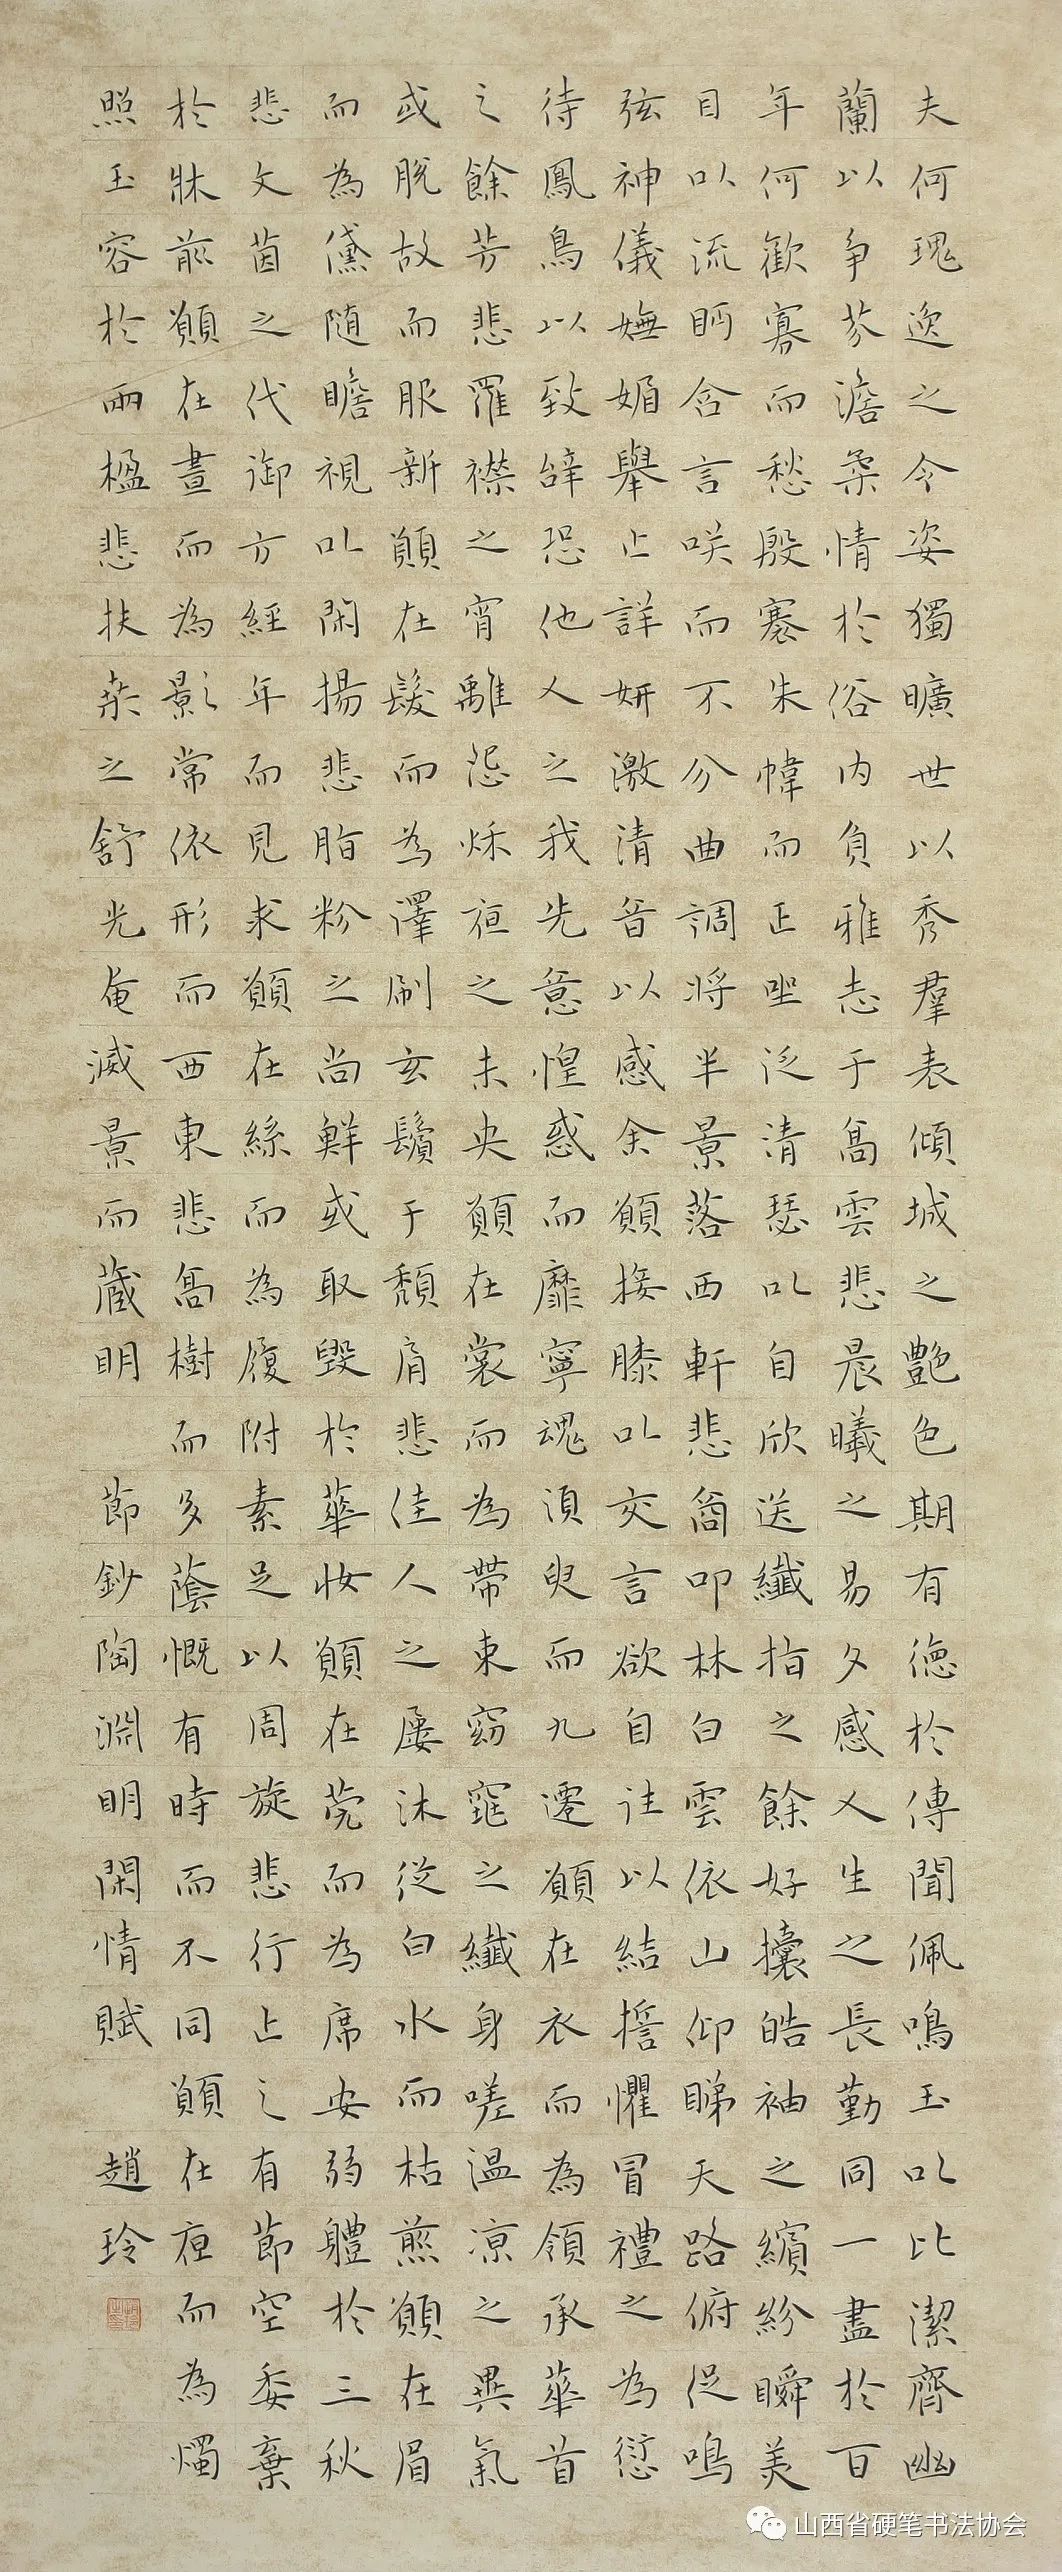 夫何瑰逸之令姿獨曠世以秀羣表傾城之艷色期有德於傳聞佩鳴玉以比潔齊幽
蘭以爭芬澹柔情於俗內負雅志于高雲悲晨曦之易夕感人生之長勤同一盡於百
年何歡寡而愁殷褰朱幃而正坐泛清瑟以自欣送纖指之餘好攘皓袖之繽紛瞬美
目以流眄含言咲而不分曲調將半景落西軒悲商叩林白雲依山仰睇天路俯促鳴
弦神儀嫵媚舉止詳妍激清音以感余願接膝以交言欲自往以結誓懼冒禮之為愆
待鳳鳥以致辝恐他人之我先意惶惑而靡寧魂須臾而九遷願在衣而為領承華首
之餘芳悲羅襟之宵離怨秌夜之未央願在裳而為帶束窈窕之纖身嗟溫涼之異氣
或脫故而服新願在髮而為澤刷玄鬢于頹肩悲佳人之屢沐從白水而枯煎願在眉
而為黛隨瞻視以閑揚悲脂粉之尚鮮或取毀於華妝願在莞而為席安弱體於三秋
悲文茵之代御方經年而見求願在絲而為履附素足以周旋悲行止之有節空委棄
於牀前願在晝而為影常依形而西東悲高樹而多蔭慨有時而不同願在夜而為燭
照玉容於兩楹悲扶桑之舒光奄滅景而藏明 節鈔陶淵明閑情賦 趙玲
山西省硬笔书法协会